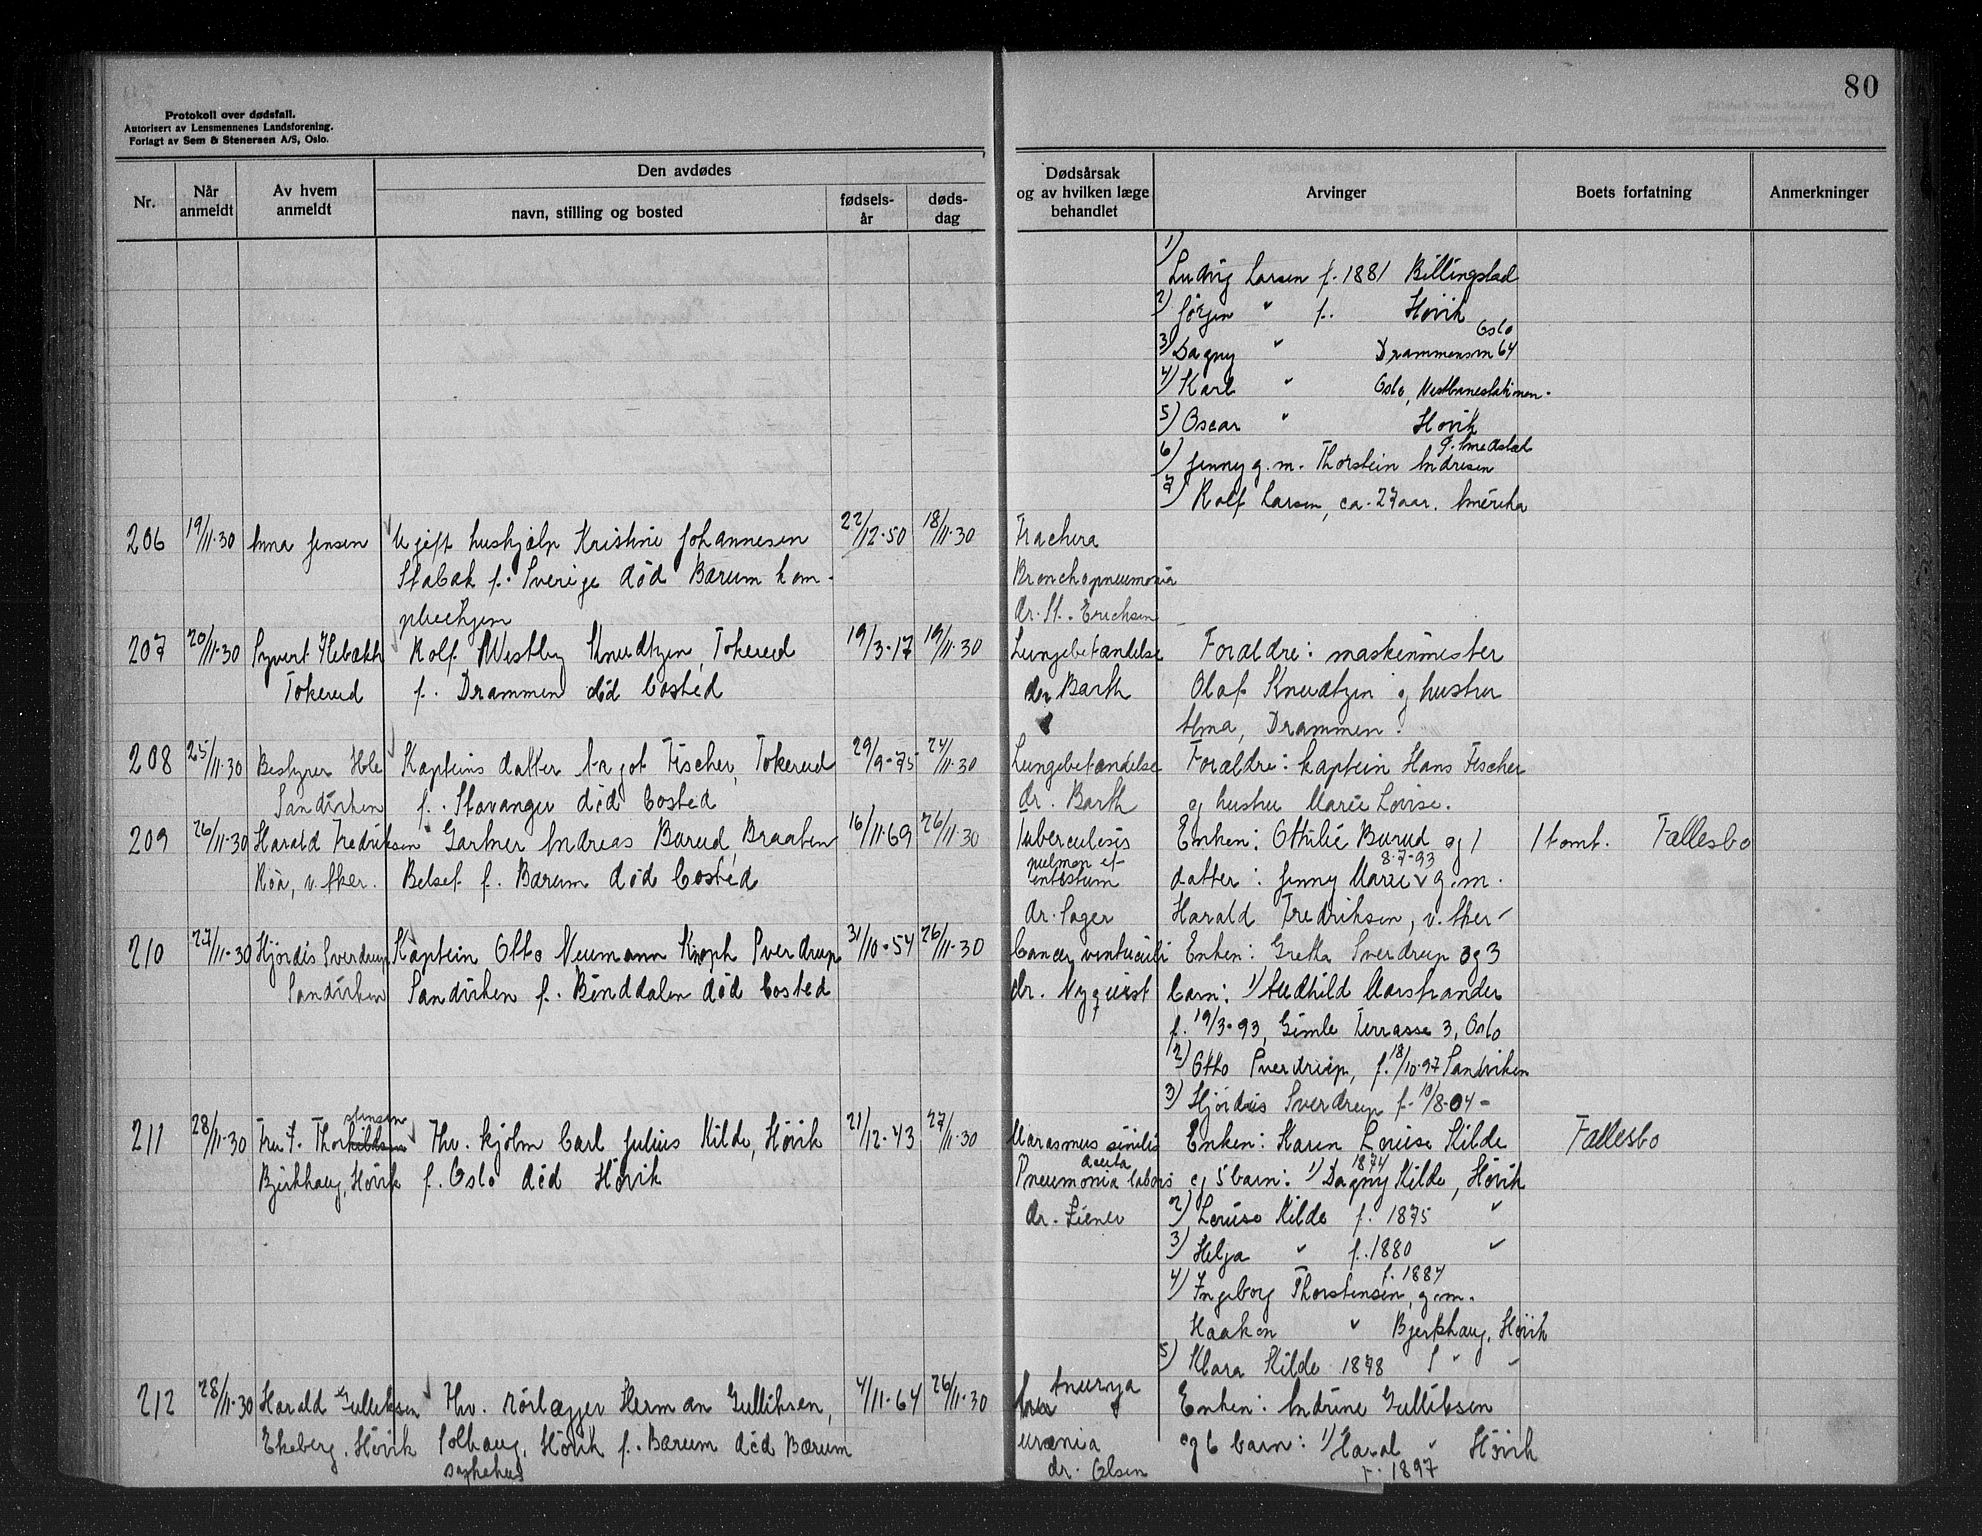 80
Protokoll over dødsfall.
Autorisert av Lensmennenes Landsforening.
Forlagt av Sem & Stenersen A/S, Oslo.
Nr.
Når anmeldt
Av hvem anmeldt
Den avdødes
navn, stilling og bosted
fødsels-år
døds-dag
Dødsårsak og av hvilken læge behandlet
Arvinger
Boets forfatning
Anmerkninger
1) Ludvig Larsen f. 1881 Billingstad
2) Jörgen " f. Høvik
3) Dagny " Drammensvn 64 Oslo
4) Karl " Oslo, Vestbanestationen.
5) Oscar " Høvik
6) Jenny g. m. Thorstein Andresen
7) Rolf Larsen, ca. 27 aar. Amerika
206 19/11-30 Anna Jensen Ugift hushjælp Kristine Johannesen 22/12-50 18/11-30
Stabæk f. Sverige död Bærum kom-
pleiehjem
Bronchopneumonia
dr. St. Erichsen
207 20/11-30 Syvert Tokerud Rolf Westby Knudtzen, Tokerud 19/3-17 19/11-30 Lungebetændelse Forældre: maskinmester
f. Drammen död bosted dr Barth Olaf Knudtzen og hustru
Alma, Drammen.
208 25/11-30 Bestyrer Hole Kapteins datter Fischer, Tokerud 29/9-75 24/11-30 Lungebetændelse Forældre: kaptein Hans Fischer
Sandviken f. Stavanger död bosted dr. Barth og hustru Marie Lovise.
209 26/11-30 Harald Fredriksen Gartner Andreas Burud, Braaten 16/11-69 26/11-30 Tuberculosis Enken: Ottilie Burud og 1 1 tomt. Fællesbo
Röa, v. Aker. Belset f. Bærum död bosted pulmon et intestium datter: Jenny Marie 8-7-93 g. m.
dr. Sager Harald Fredriksen, v. Aker
210 27/11-30 Hjördis Sverdrup Kaptein Otto Neumann Knoph Sverdrup 31/10-54 26/11-30 Cancer ventriculi Enken: Gretha Sverdrup og 3
Sandviken Sandviken f. Binddalen död bosted dr. Nyquist barn: 1) Audhild Marstrander
f. 19/3-93, Gimle Terrasse 3, Oslo
2) Otto Sverdrup, f. 18/10-97 Sandviken
3) Hjördis Sverdrup f. 10/8-04 -
211 28/11-30 Fru I. Thorstensen Fhv. kjöbm Carl Julius Kilde, Høvik 21/12-43 27/11-30 Marasmus senilis Enken: Karen Louise Kilde Fællesbo
Bjerkhaug, Høvik f. Oslo död Høvik Pneumonia acuta og 5 barn: 1) Dagny 1874 Kilde, Høvik
dr. Ziener 2) Louise Kilde f. 1875 "
3) Helga " f. 1880 "
4) Ingeborg Thorstensen, f. 1884 g. m.
Haakon " Bjerkhaug, Høvik
5) Klara Kilde 1878
212 28/11-30 Harald Gulliksen Fhv. rörlægger Herman Gulliksen, 4/11-64 26/11-30 Enken: Andrine Gulliksen
Ekeberg, Høvik Solhaug, Høvik f. Bærum död Bærum uræmia og 6 barn: 1) Haral " Høvik
sykehus dr. Olsen f. 1897